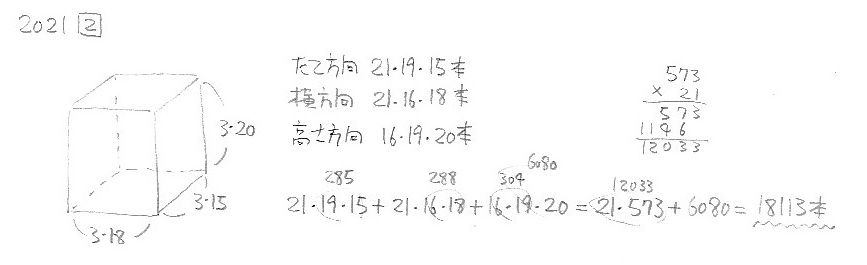 2021 2
3・20
3・15
3・18
たて方向 21・19・15本
横方向 21・16・18本
高さ方向 16・19・20本
573
× 21
573
1146
12033
285 288 304 6080 12033
21・19・15+21・16・18+16・19・20=21・573+6080=18113本